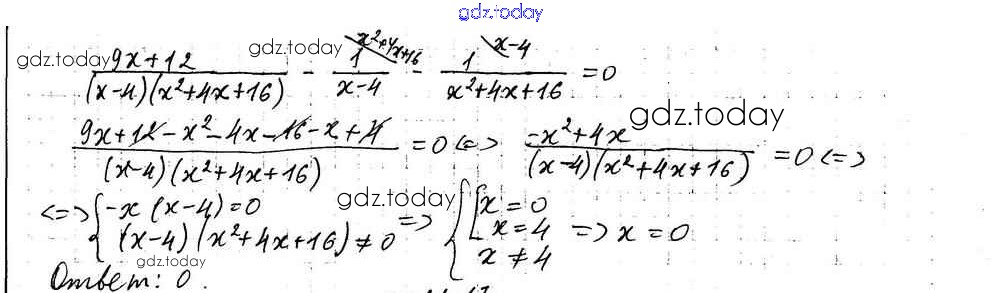 gdz.today
gdz.today gdz.today gdz.today
(9x+12)/((x-4)(x²+4x+16)) - 1/(x-4) - 1/(x²+4x+16) = 0
x²+4x+16 x-4
(9x+12-x²-4x-16-x+4)/((x-4)(x²+4x+16)) = 0 <=> (-x²+4x)/((x-4)(x²+4x+16)) = 0 <=>
gdz.today
<=> { -x(x-4)=0 ; (x-4)(x²+4x+16)≠0 => { [ x=0 ; x=4 ; x≠4 => x=0
gdz.today
gdz.today
Ответ: 0.